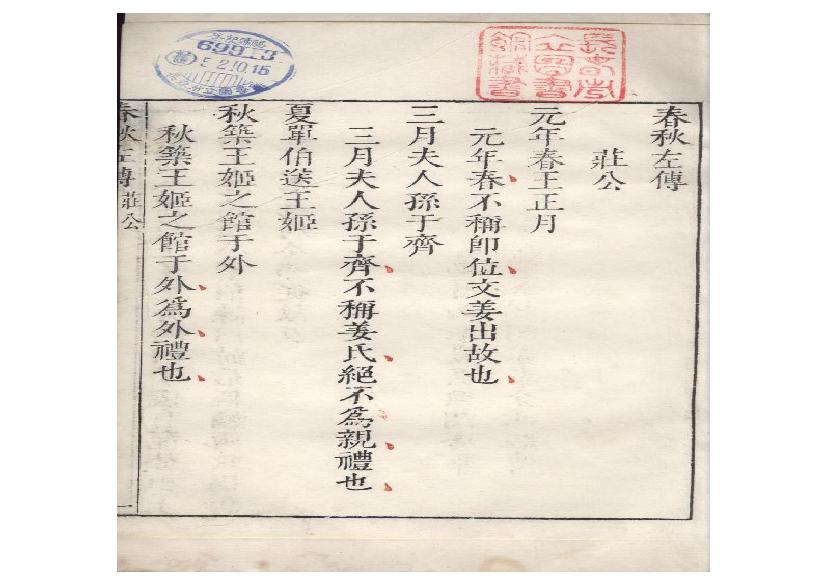 春秋左傳
莊公
元年春王正月
元年春不稱卽位文姜出故也
三月夫人孫于齊
三月夫人孫于齊不稱姜氏絕不爲親禮也
夏單伯送王姬
秋築王姬之館于外
秋築王姬之館于外爲外禮也
春秋左傳 莊公 一
69913
5.2.10.15